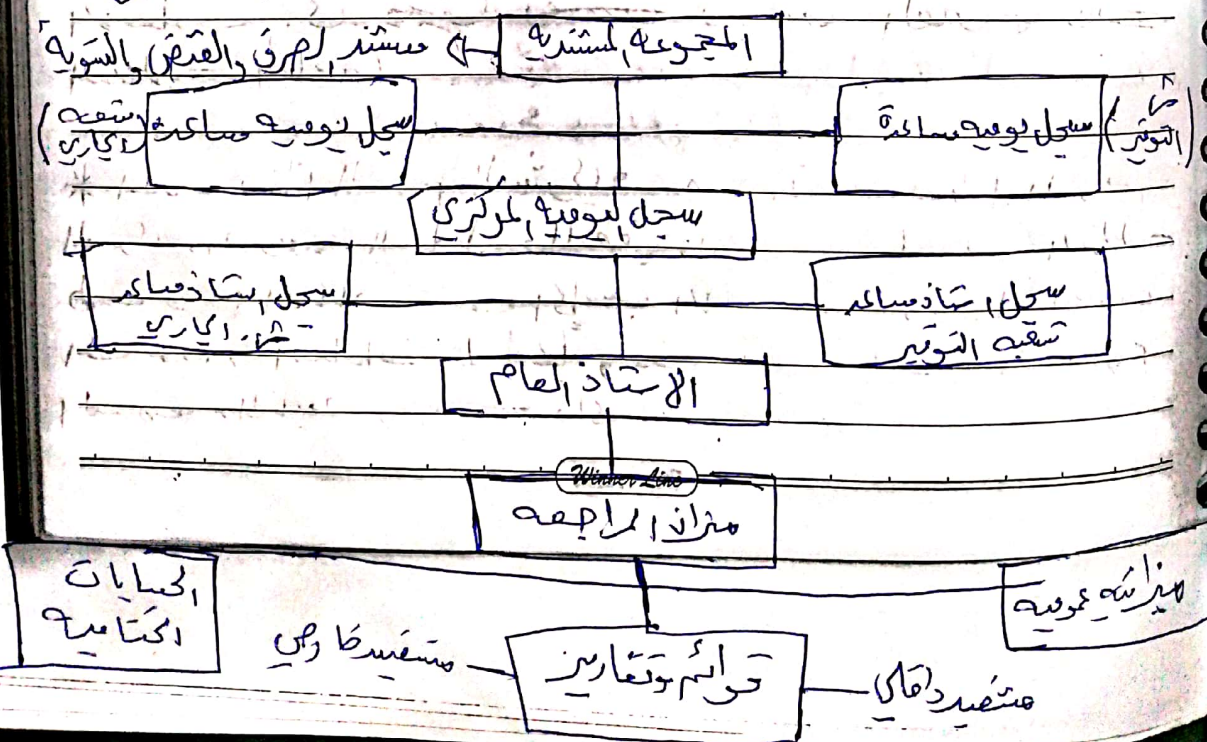 المجموعه المستنديه ← مستند الصرف والقبض والتسوية
سجل يوميه مساعدة (التوفير)
سجل يوميه مساعدة (شعبه الجاري)
سجل اليوميه المركزي
سجل استاذ مساعد
شعبه التوفير
سجل استاذ مساعد
ش. الجاري
الاستاذ العام
Winner Line
ميزان المراجعه
ميزانيه عموميه
الحسابات
الختاميه
قوائم وتقارير
مستفيد داخلي
مستفيد خارجي